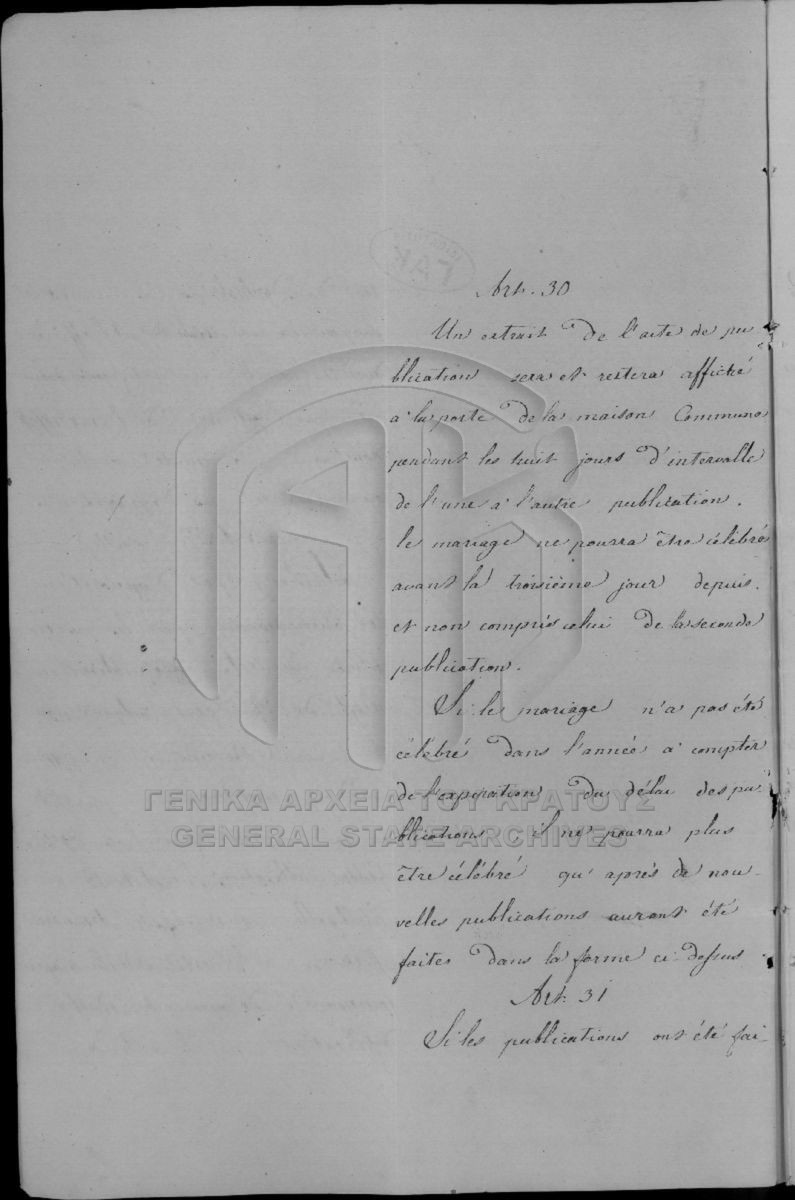 Art. 30
Un extrait de l'acte de pu
blication sera et restera affiché
à la porte de la maison Commune
pendant les huit jours d'intervalle
de l'une à l'autre publication.
le mariage ne pourra être célébré
avant la troisième jour depuis.
et non compris celui de la seconde
publication.
Si le mariage n'a pas été
célébré dans l'année à compter
de l'experation du délai des pu-
blications il ne pourra plus
être célébré qu'après de nou-
velles publications auront été
faites dans la forme ci-dessus.
Art. 31
Si les publications ont été fai-
ΓΑΚ
ΓΕΝΙΚΑ ΑΡΧΕΙΑ ΤΟΥ ΚΡΑΤΟΥΣ
GENERAL STATE ARCHIVES